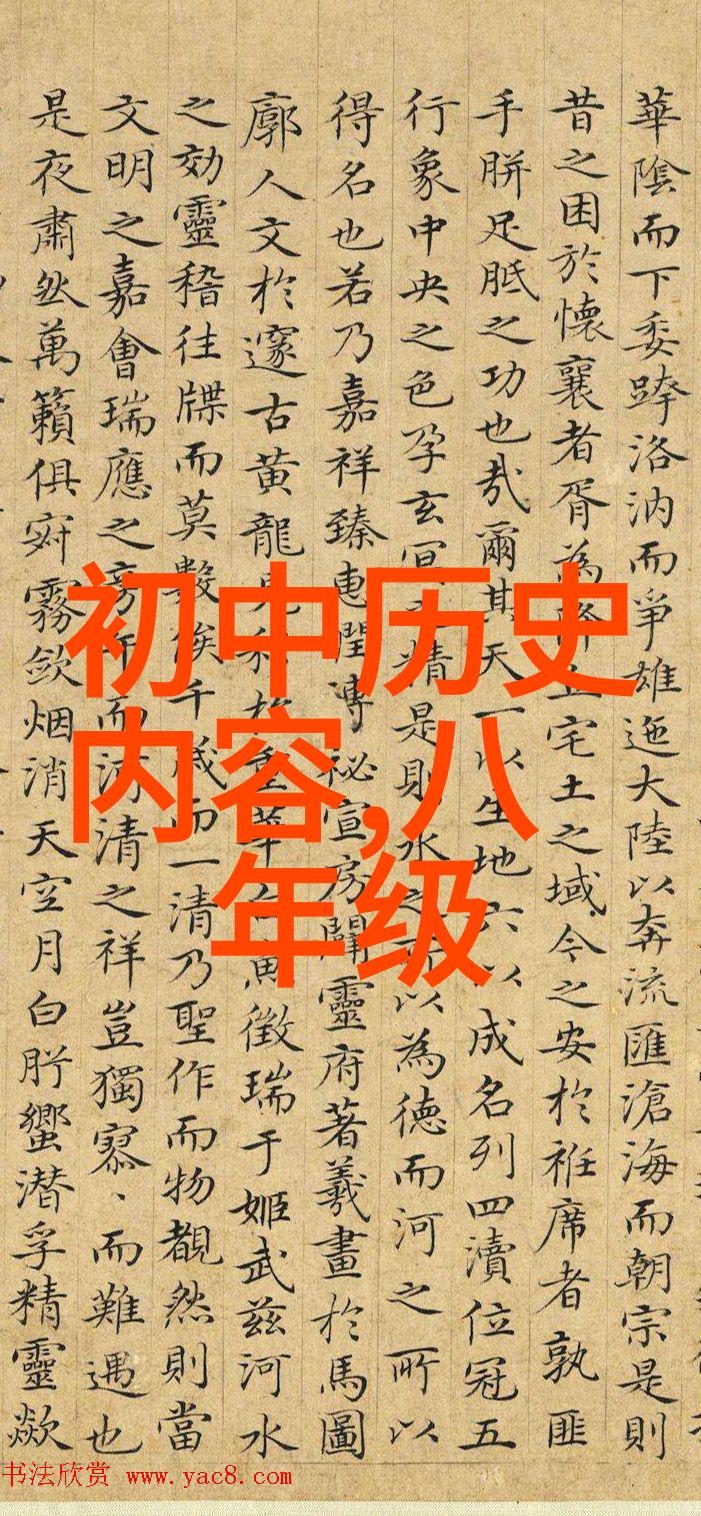 華陰而下委跨洛汭而爭雄迤大陸以奔流匯滄海而朝宗是則
昔之困於懷襄者胥為降丘宅土之域今之安於袵席者孰匪
手胼足胝之功也哉爾其天一以生地六以成名列四瀆位冠五
行象中央之色孕玄冥之精是則水之所以為德而河之所以
得名也若乃嘉祥臻惠閏溥祕宣房闡靈府著羲畫於馬圖
廓人文於邃古黃龍見白魚徵瑞于姬武茲河水
之効靈稽往牒而莫數俟千歲而一清乃聖作而物覩然則當
文明之嘉會瑞應之旁午而河清之祥豈獨寥、而難遇也
是夜肅然萬籟俱寂霧斂烟消天空月白肹蠁潛孚精靈歘
初中历史
内容,八
年级
书法欣赏 www.yac8.com